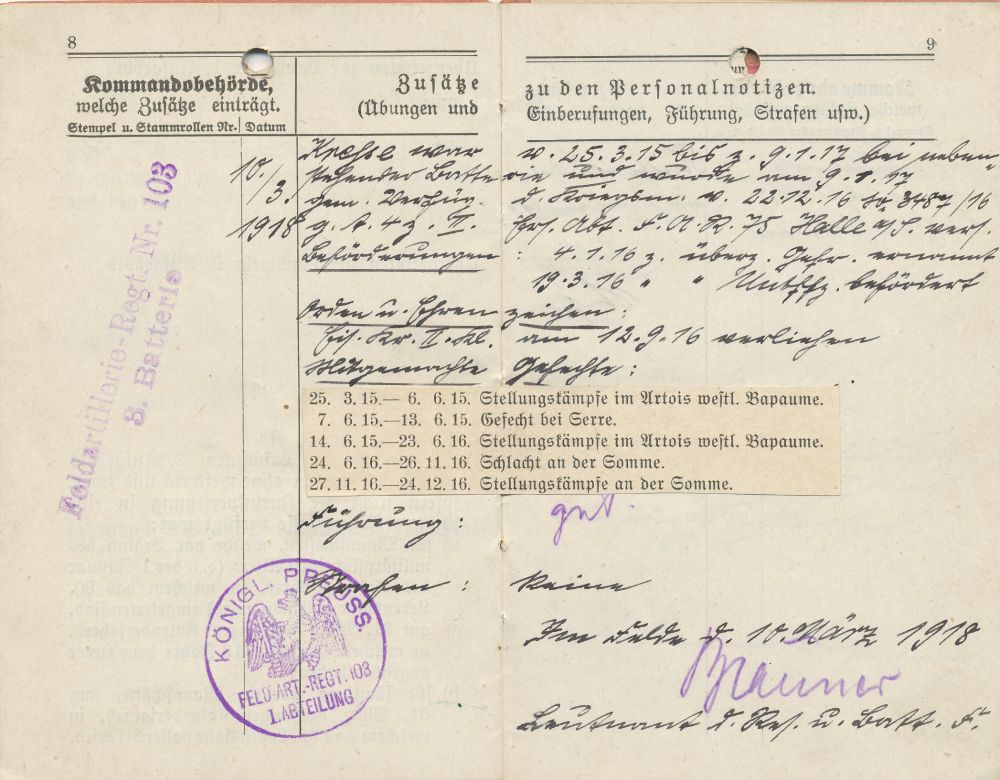 8
9
Kommandobehörde,
welche Zusätze einträgt.
Stempel u. Stammrollen Nr. Datum
Zusätze zu den Personalnotizen.
(Übungen und Einberufungen, Führung, Strafen usw.)
Feldartillerie-Regt. Nr. 103
3. Batterie
10. / 3. 1918
war v. 25.3.15 bis z. 9.1.17 bei neben
stehender Batterie und wurde am 9.1.17
gem. Verfüg. d. Kriegsm. v. 22.12.16 Nr. 3487/16
g. A. 4 z. II. Ers. Abt. F. A. R. 75 Halle a/S. vers.
Beförderungen: 4.1.16 z. überz. Gefr. ernannt
19.3.16 " " Untffz. befördert
Orden u. Ehrenzeichen:
Eis. Kr. II. Kl. am 12.9.16 verliehen
Mitgemachte Gefechte:
25. 3. 15.— 6. 6. 15. Stellungskämpfe im Artois westl. Bapaume.
7. 6. 15.—13. 6. 15. Gefecht bei Serre.
14. 6. 15.—23. 6. 16. Stellungskämpfe im Artois westl. Bapaume.
24. 6. 16.—26. 11. 16. Schlacht an der Somme.
27. 11. 16.—24. 12. 16. Stellungskämpfe an der Somme.
Führung: gut.
Strafen: keine
Im Felde d. 10 März 1918
Leutnant d. Res. u. Batt. F.
KÖNIGL. PREUSS.
FELD-ART.-REGT. 103
I. ABTEILUNG